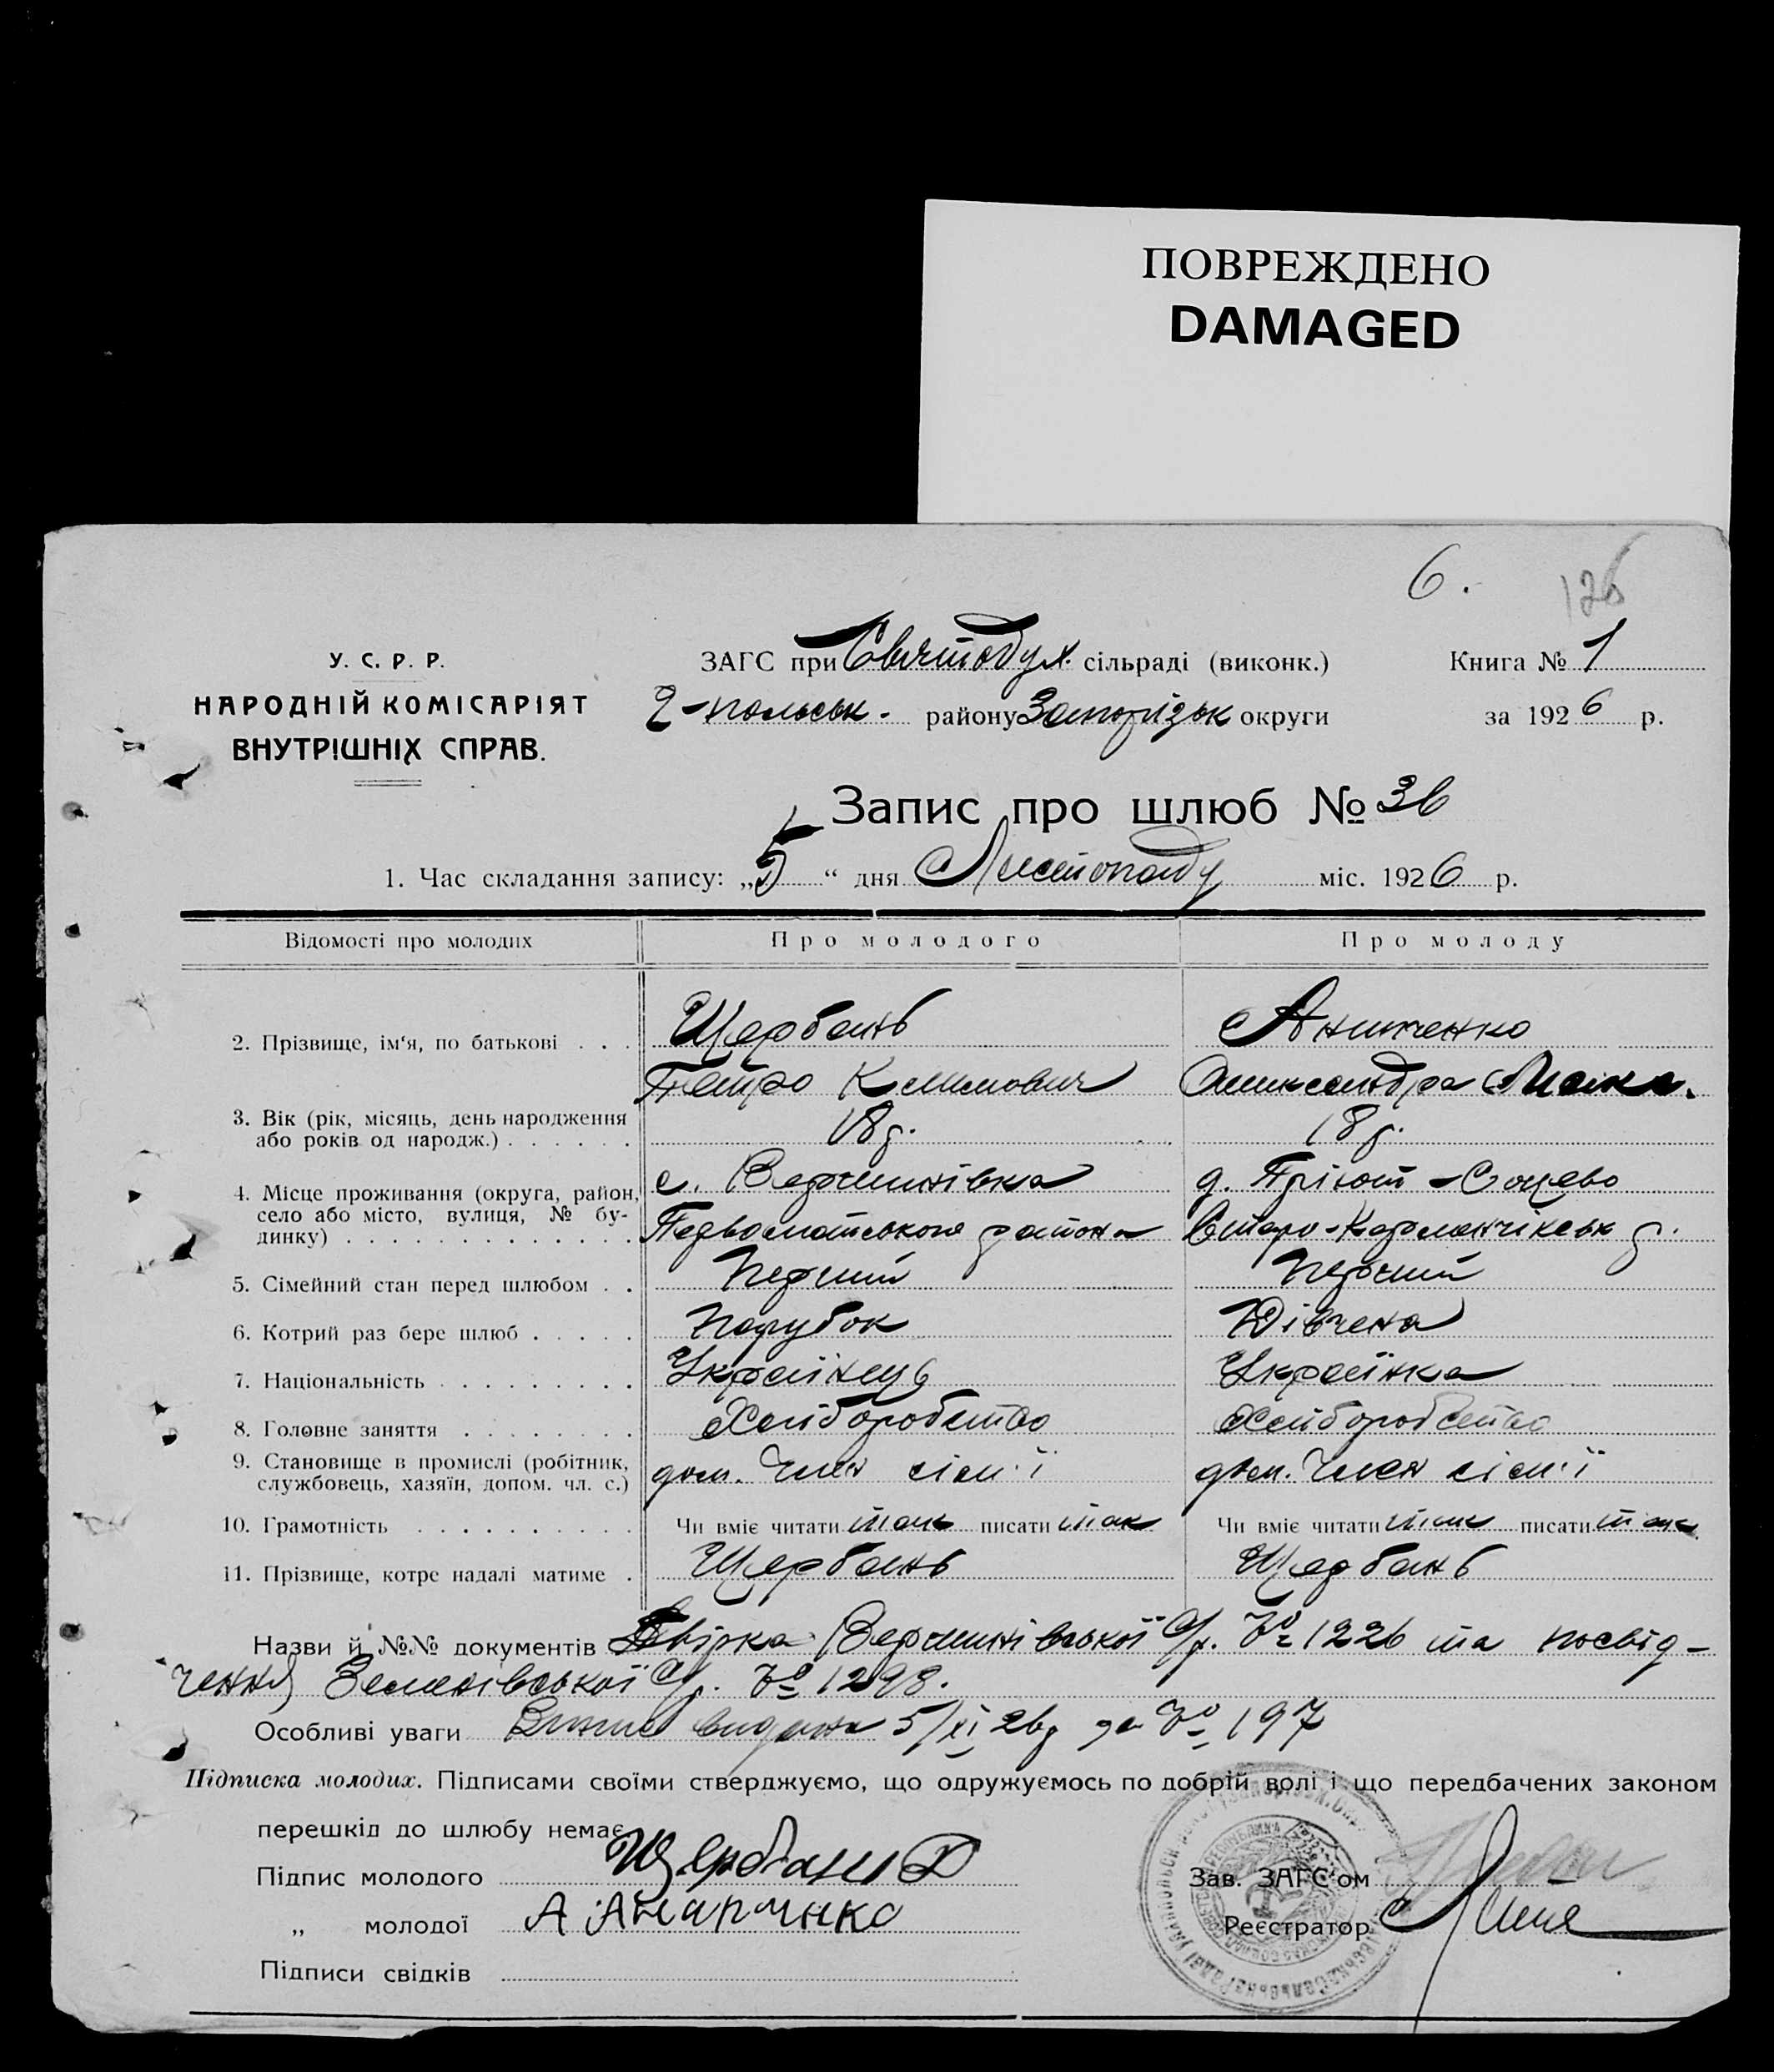 ПОВРЕЖДЕНО
DAMAGED
6.
126
У. С. Р. Р.
НАРОДНІЙ КОМІСАРІЯТ
ВНУТРІШНІХ СПРАВ.
ЗАГС при Святодух. сільраді (виконк.)
Книга № 1
г-польськ. району Запорізьк округи
за 1926 р.
Запис про шлюб № 36
1. Час складання запису: „5“ дня Листопаду міс. 1926 р.
Відомості про молодих
Про молодого
Про молоду
2. Прізвище, ім‘я, по батькові . . .
Щербань
Петро Климович
Олександра
3. Вік (рік, місяць, день народження
або років од народж.) . . . . . .
18 р.
18 р.
4. Місце проживання (округа, район,
село або місто, вулиця, № бу-
динку) . . . . . . . . . . . .
с. Вершинівка
района
д.
р.
5. Сімейний стан перед шлюбом . .
Перший
Перший
6. Котрий раз бере шлюб . . . . .
Парубок
Дівчена
7. Національність . . . . . . . . .
Українець
Українка
8. Головне заняття . . . . . . . .
Хліборобство
Хліборобство
9. Становище в промислі (робітник,
службовець, хазяїн, допом. чл. с.)
доп. Член сім'ї
доп. Член сім'ї
10. Грамотність . . . . . . . . . .
Чи вміє читати так писати так
Чи вміє читати так писати так
11. Прізвище, котре надалі матиме .
Щербань
Щербань
Назви й №№ документів Вершинівської С/р. № 1226 та посвід-
чення С/р. № 1298.
Особливі уваги видана 5/XI 26р за № 197
Підписка молодих. Підписами своїми стверджуємо, що одружуємось по добрій волі і що передбачених законом
перешкід до шлюбу немає.
Підпис молодого Щербань
„ молодої
Підписи свідків
Зав. ЗАГС‘ом
Реєстратор